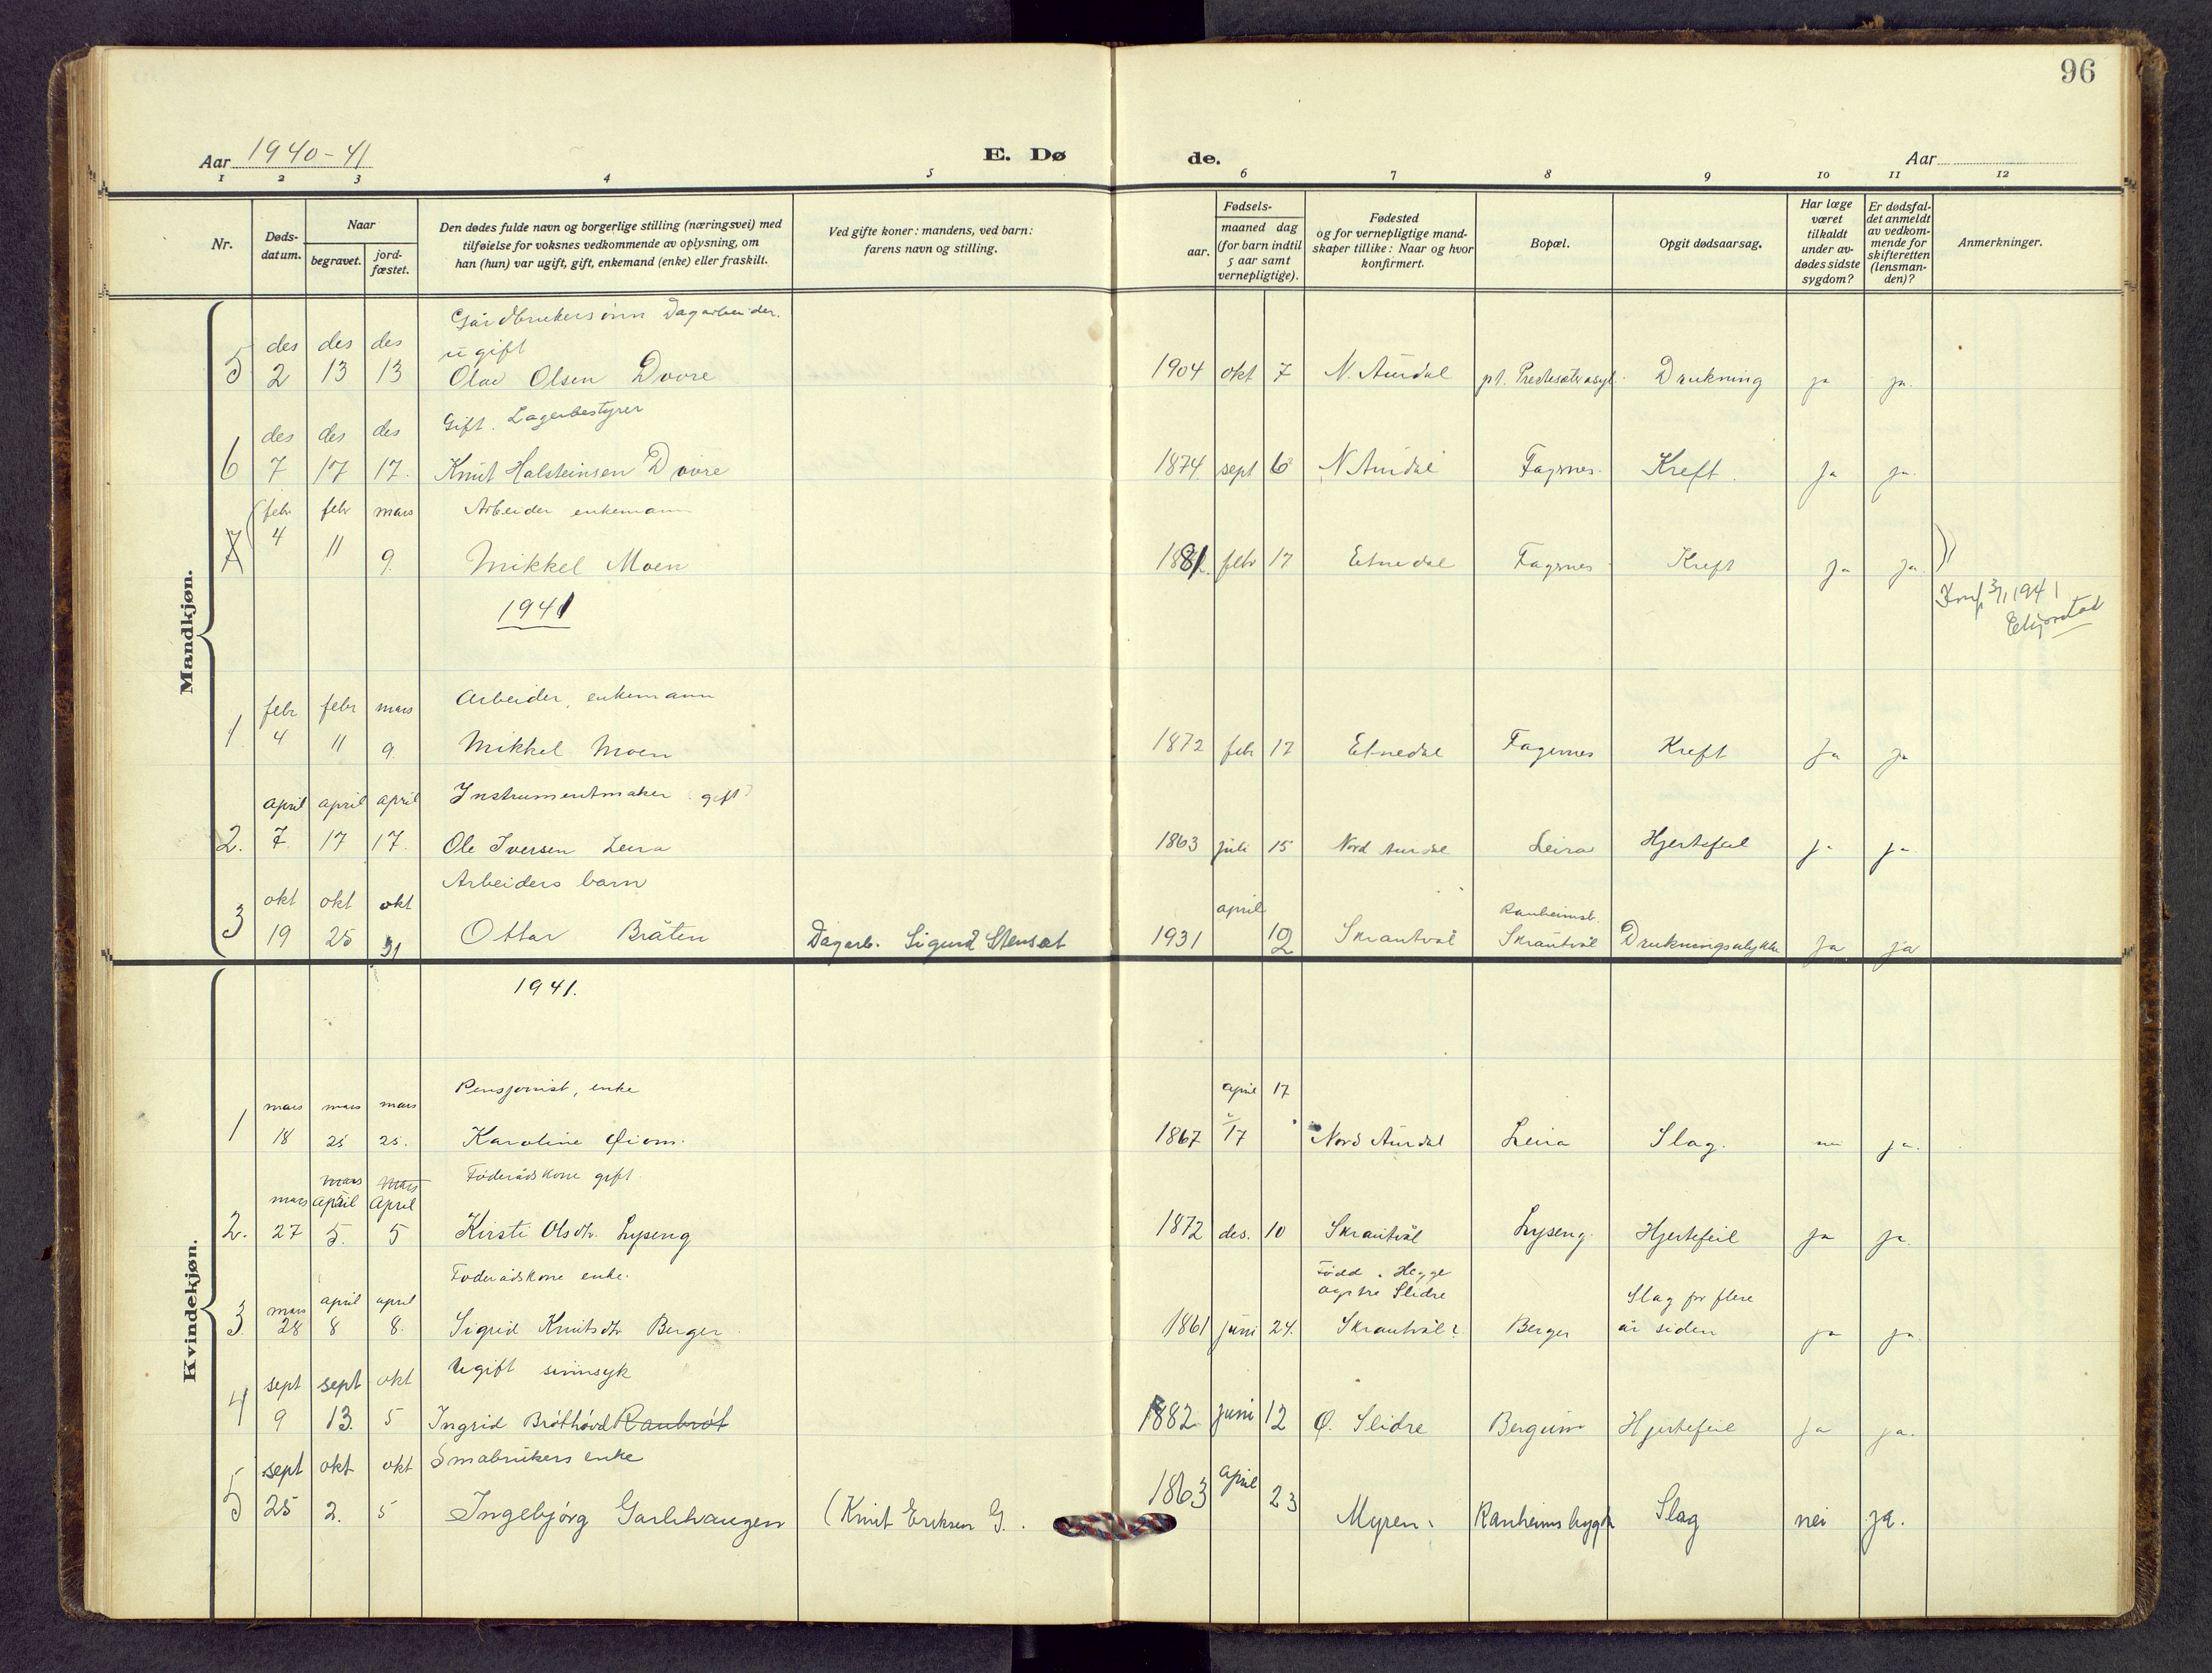 96
Aar 1940-41
E. Dø
de.
Aar
1 2 3 4 5 6 7 8 9 10 11 12
Nr.
Døds-
datum.
Naar
begravet.
jord-
fæstet.
Den dødes fulde navn og borgerlige stilling (næringsvei) med
tilføielse for voksnes vedkommende av oplysning, om
han (hun) var ugift, gift, enkemand (enke) eller fraskilt.
Ved gifte koner: mandens, ved barn:
farens navn og stilling.
Fødsels-
aar.
maaned dag
(for barn indtil
5 aar samt
vernepligtige).
Fødested
og for vernepligtige mand-
skaper tillike: Naar og hvor
konfirmert.
Bopæl.
Opgit dødsaarsag.
Har læge
været
tilkaldt
under av-
dødes sidste
sygdom?
Er dødsfal-
det anmeldt
av vedkom-
mende for
skifteretten
(lensman-
den)?
Anmerkninger.
Mandkjøn.
Gårdbrukersønn Dagarbeider.
des des des ugift
5 2 13 13 Olav Olsen Dovre 1904 okt 7 N. Aurdal Drukning ja ja.
des des des Gift. Lagerbestyrer
6 7 17 17. Knut Halsteinsen Dovre 1874 sept 6 N Aurdal Fagernes Kreft. Ja ja.
febr febr mars Arbeider enkemann
7 4 11 9. Mikkel Moen 1881 febr 17 Etnedal Fagernes Kreft Ja Ja.
1941
febr febr mars Arbeider, enkemann
1. 4 11 9. Mikkel Moen 1872 feb 17 Etnedal Fagernes Kreft Ja ja
april april april Instrumentmaker gift
2. 7. 17 17. Ole Iversen Leira 1863 juli 15 Nord Aurdal Leira Hjertefeil ja ja.
okt okt okt Arbeiders barn april Ranheimsb.
3 19 25 31 Ottar Bråten Dagarb. Sigurd Stensæt 1931 Skrautvål Skrautvål Drukningsulykke Ja Ja
Kvindekjøn.
1941.
mars mars mars Pensjonist, enke april 17
1 18 25 25. Karoline 1867 17 Nord Aurdal Leira Slag. nei ja.
mars mars mars april april Føderådskone gift.
2. 27 5. 5 Kirsti Olsdtr. Lyseng 1872 des. 10 Skrautvål Lyseng Hjertefeil ja ja.
mars april april Føderådskone enke. Född i Hegge Slidre Slag for flere
3 28 8 8. Sigrid Knutsdtr Berger 1861 juni 24. Skrautvål? Berger år siden ja ja.
sept sept okt Ugift sinnsyk
4 9 13. 5 Ingrid Bröthövd Raubröt 1882 juni 12 Ø. Slidre Bergum Hjertefeil Ja ja.
sept okt okt Småbrukers enke april
5 25 2. 5 Ingebjørg Garlihaugen (Knut Eriksen G. 1863 23 Myren. Ranheimsbygda Slag nei ja.